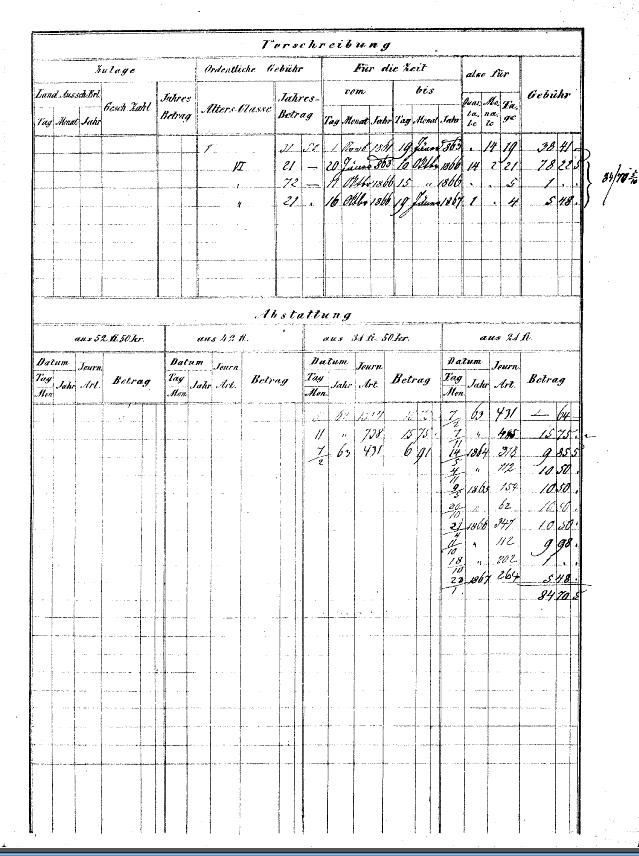 Vorschreibung
Zulage Ordentliche Gebühr Für die Zeit also für Gebühr
Land. Aussch. Erl. Gesch. Zahl Jahres-Betrag Alters-Classe Jahres-Betrag vom bis Quartale Monate Tage
Tag Monat Jahr Tag Monat Jahr Tag Monat Jahr
31 50 1 19 863 . 14 19 38 41 –
VI 21 – 20 863 10 Oktbr 1866 14 2 21 78 22 5
" 72 – 11 Oktbr 1866 15 " 1866 . . 5 1 . .
" 21 . 16 Oktbr 1866 19 1867 1 . 4 5 48 .
84/70 5/10
Abstattung
aus 52 fl. 50 kr. aus 42 fl. aus 31 fl. 50 kr. aus 21 fl.
Datum Journ. Art. Betrag Datum Journ. Art. Betrag Datum Journ. Art. Betrag Datum Journ. Art. Betrag
Tag Mon. Jahr Tag Mon. Jahr Tag Mon. Jahr Tag Mon. Jahr
7/2 63 431 – 64 –
11 " 738 15 75 . " 15 75 .
7/2 63 431 6 91 1864 9 85 5
" 112 10 50 .
1865 154 10 50 .
" 62
1866 347 10 50 .
" 112 9 98 .
18/10 " 202 1 . .
1867 264 5 48 .
84 70 5